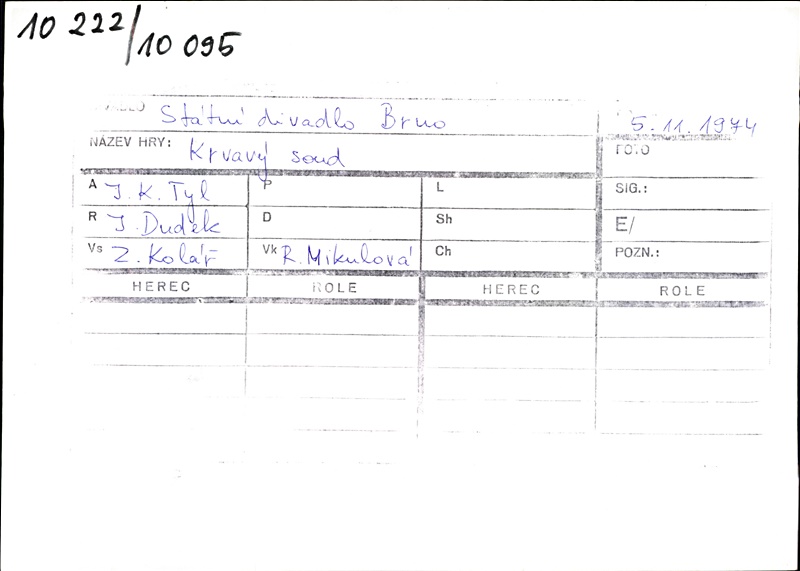 10 222/10 095
Státní divadlo Brno
5. 11. 1974
NÁZEV HRY: Krvavý soud
FOTO
A J. K. Tyl P L SIG.:
R J. Dudek D Sh E/
Vs Z. Kolář Vk R. Mikulová Ch POZN.:
HEREC ROLE HEREC ROLE